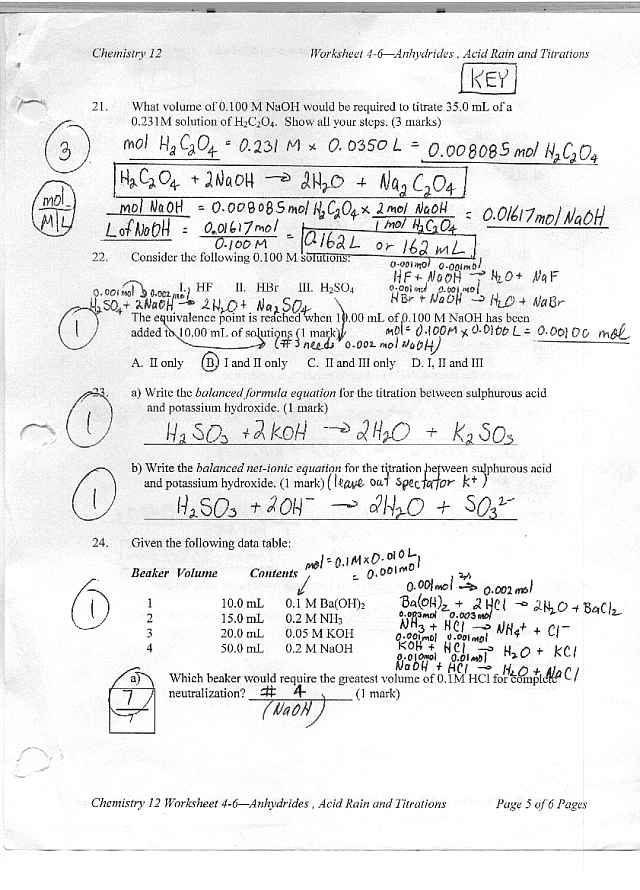 Chemistry 12 Worksheet 4-6—Anhydrides , Acid Rain and Titrations
KEY
21. What volume of 0.100 M NaOH would be required to titrate 35.0 mL of a
0.231M solution of H₂C₂O₄. Show all your steps. (3 marks)
3
mol H₂C₂O₄ = 0.231 M × 0.0350 L = 0.008085 mol H₂C₂O₄
H₂C₂O₄ + 2NaOH → 2H₂O + Na₂C₂O₄
mol
M L
mol NaOH = 0.008085 mol H₂C₂O₄ × 2 mol NaOH / 1 mol H₂C₂O₄ = 0.01617 mol NaOH
L of NaOH = 0.01617 mol / 0.100 M = 0.162 L or 162 mL
22. Consider the following 0.100 M solutions:
0.001 mol 0.001 mol
HF + NaOH → H₂O + NaF
I. HF II. HBr III. H₂SO₄
0.001 mol 0.001 mol
HBr + NaOH → H₂O + NaBr
0.001 mol → 0.002 mol
H₂SO₄ + 2NaOH → 2H₂O + Na₂SO₄
The equivalence point is reached when 10.00 mL of 0.100 M NaOH has been
added to 10.00 mL of solutions (1 mark)
mol = 0.100M × 0.0100 L = 0.00100 mol
1
(#3 needs 0.002 mol NaOH)
A. II only B. I and II only C. II and III only D. I, II and III
23. a) Write the balanced formula equation for the titration between sulphurous acid
and potassium hydroxide. (1 mark)
1
H₂SO₃ + 2KOH → 2H₂O + K₂SO₃
b) Write the balanced net-ionic equation for the titration between sulphurous acid
and potassium hydroxide. (1 mark) (leave out spectator K⁺)
1
H₂SO₃ + 2OH⁻ → 2H₂O + SO₃²⁻
24. Given the following data table:
mol = 0.1M × 0.010 L
= 0.001 mol
Beaker Volume Contents
0.001 mol x2→ 0.002 mol
1 10.0 mL 0.1 M Ba(OH)₂
Ba(OH)₂ + 2HCl → 2H₂O + BaCl₂
0.003 mol 0.003 mol
2 15.0 mL 0.2 M NH₃
NH₃ + HCl → NH₄⁺ + Cl⁻
0.001 mol 0.001 mol
3 20.0 mL 0.05 M KOH
KOH + HCl → H₂O + KCl
0.010 mol 0.01 mol
4 50.0 mL 0.2 M NaOH
NaOH + HCl → H₂O + NaCl
1
a) Which beaker would require the greatest volume of 0.1M HCl for complete
neutralization? # 4 (1 mark)
(NaOH)
7
7
Chemistry 12 Worksheet 4-6—Anhydrides , Acid Rain and Titrations Page 5 of 6 Pages